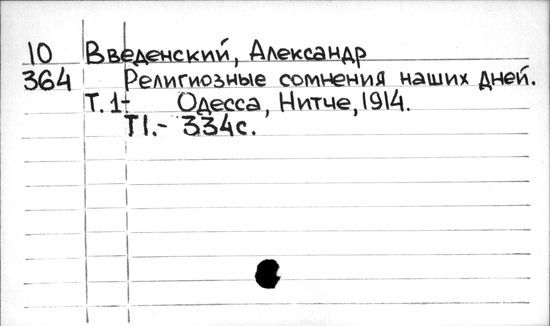 10 Введенский, Александр
364 Религиозные сомнения наших дней.
Т. 1- Одесса, Нитче, 1914.
Т1.- 334с.